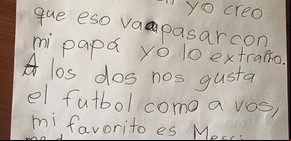 yo creo
que eso va a pasar con
mi papá yo lo extraño.
A los dos nos gusta
el futbol como a vos,
mi favorito es Messi